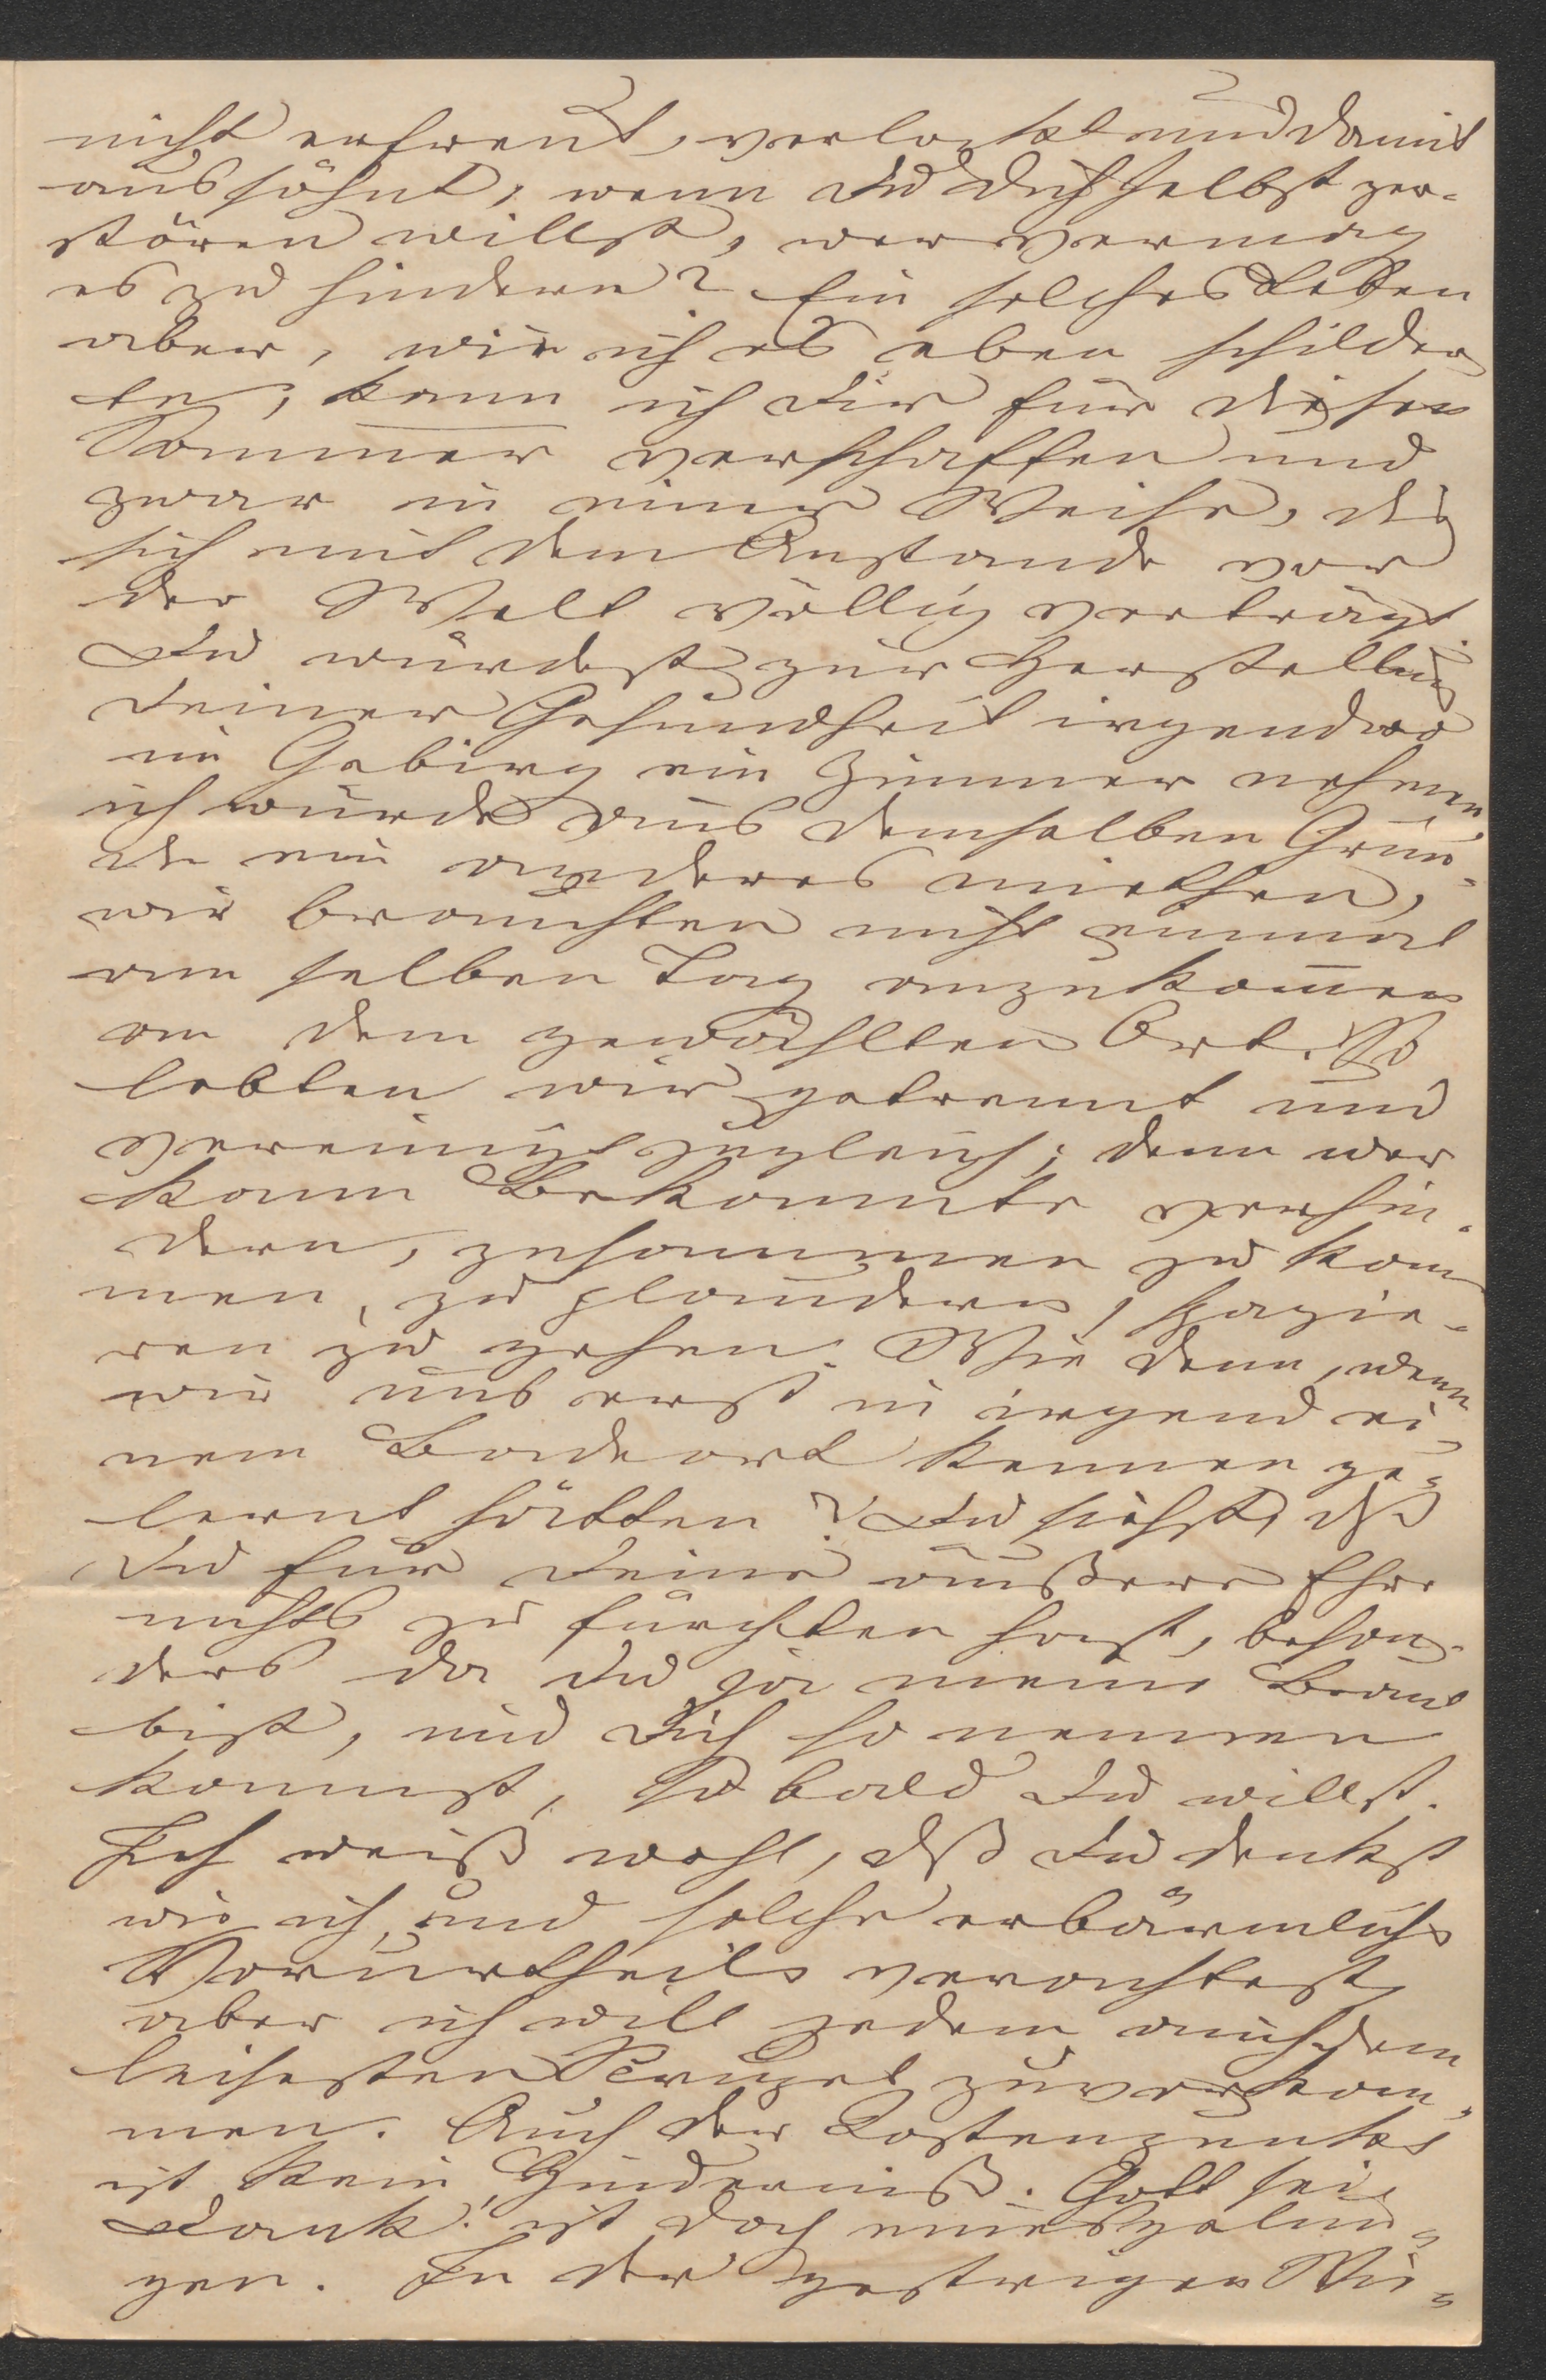 nicht erfreut, verlockt und damit
aussöhnt, wenn Du Dich selbst zer-
stören willst, wer vermag
es zu hindern? Ein solches Leben
aber, wie ich es eben schilder
te, kann ich Dir für diesen
Sommer verschaffen und
zwar in einer Weise, die
sich mit dem Anstande vor
der Welt völlig verträgt.
Du würdest zur Herstellung
Deiner Gesundheit irgendwo
im Gebirg ein Zimmer nehmen,
ich würde aus demselben Grun-
de ein anderes miethen,
wir brauchten nicht einmal
am selben Tag anzukom̅en
an dem gewählten Ort. So
lebten wir getrennt und
vereinigt zugleich; denn wer
kann Bekannte verhin-
dern, zusammen zu kom
men, zu plaudern, spazie-
ren zu gehen. Wie denn, wenn
wir uns erst in irgend ei-
nem Badeort kennen ge-
lernt hätten? Du siehst, dß
Du für Deine äußere Ehre
nichts zu fürchten hast, beson-
ders da Du ja meine Braut
bist, und Dich so nennen
kannst, so bald Du willst.
Ich weiß wohl, dß Du denkst
wie ich, und solche erbärmliche
Vorurtheile verachtest,
aber ich will jedem auch dem
leisesten Skrupel zuvorkom-
men. Auch der Kostenpunkt
ist kein Hinderniß. Gott sei
Dank! ist doch eines gelun-
gen. In der gestrigen